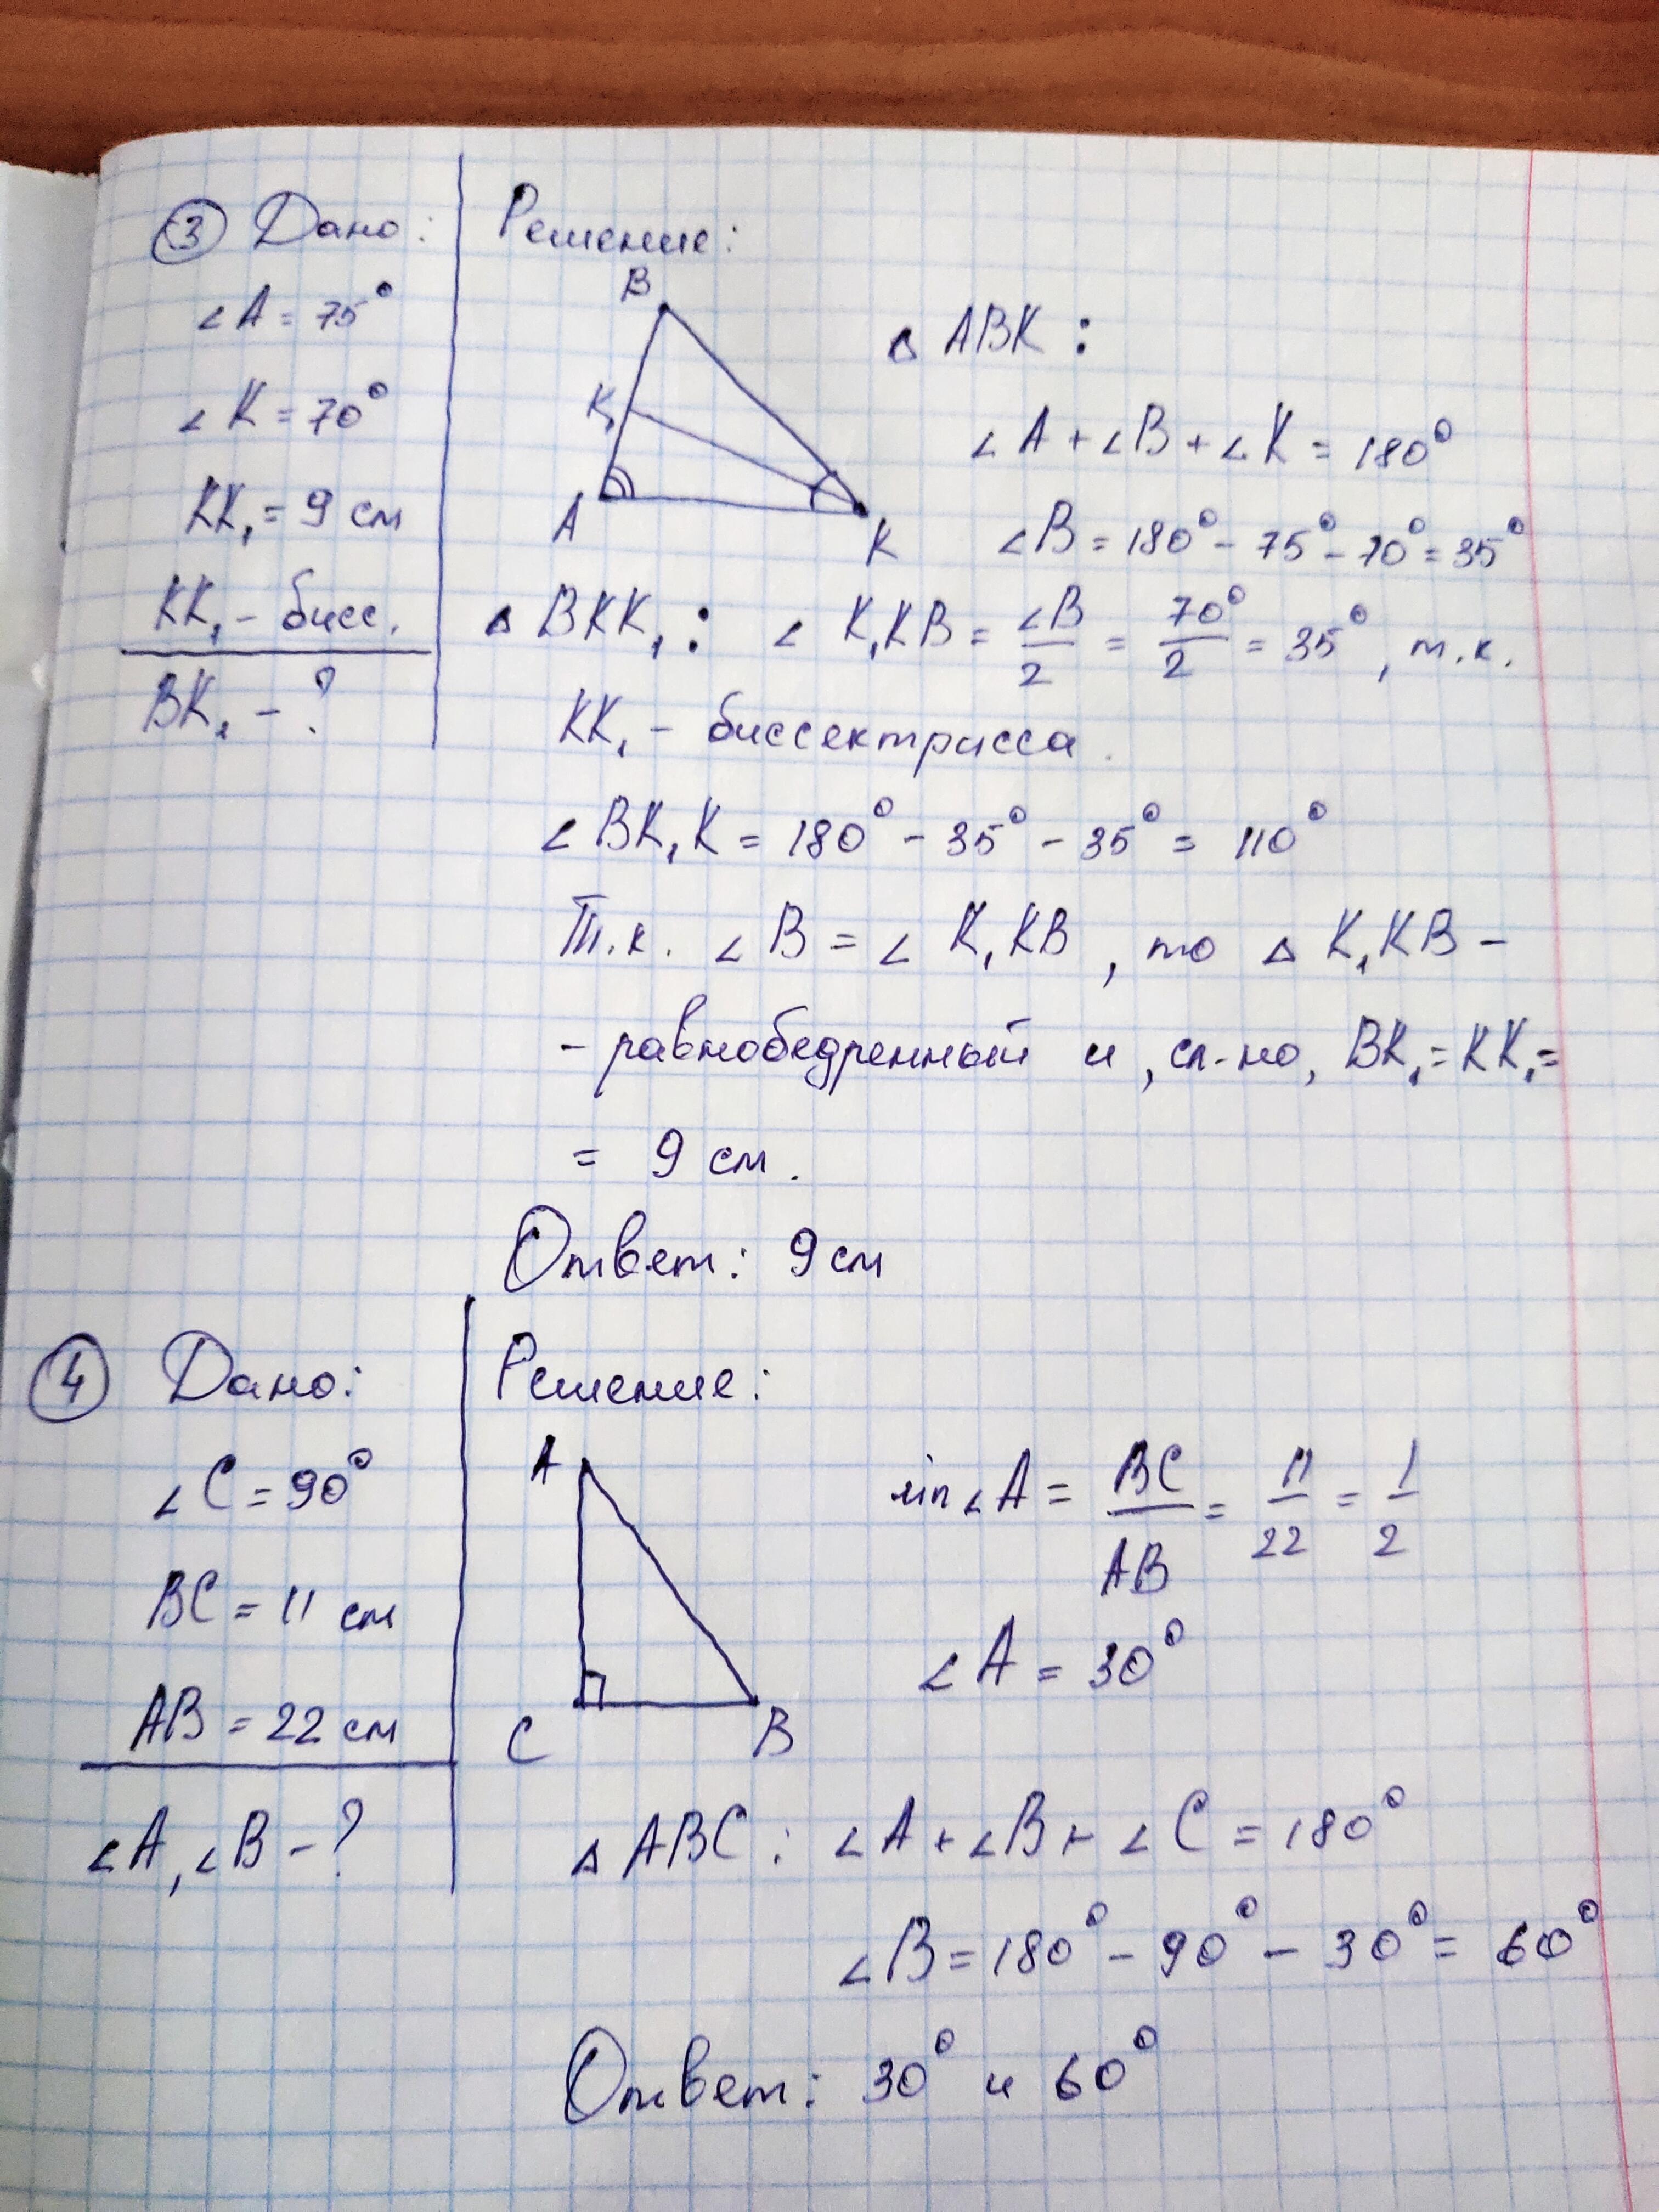 3 Дано:
∠A = 75°
∠K = 70°
KK₁ = 9 см
KK₁ – бисс.
BK₁ – ?
Решение:
B
K₁
A
K
△ ABK :
∠A + ∠B + ∠K = 180°
∠B = 180° – 75° – 70° = 35°
△ BKK₁ : ∠ K₁KB = ∠B/2 = 70°/2 = 35°, т.к.
KK₁ – биссектрисса.
∠ BK₁K = 180° – 35° – 35° = 110°
Т.к. ∠B = ∠ K₁KB, то △ K₁KB –
– равнобедренный и, сл-но, BK₁ = KK₁ =
= 9 см.
Ответ: 9 см
4 Дано:
∠C = 90°
BC = 11 см
AB = 22 см
∠A, ∠B – ?
Решение:
A
C
B
sin ∠A = BC/AB = 11/22 = 1/2
∠A = 30°
△ ABC : ∠A + ∠B + ∠C = 180°
∠B = 180° – 90° – 30° = 60°
Ответ: 30° и 60°